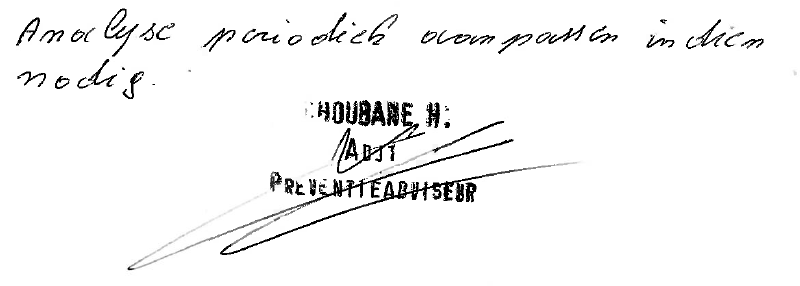 Analyse periodiek aanpassen indien
nodig.
HOUBANE H.
ADJT
PREVENTIEADVISEUR